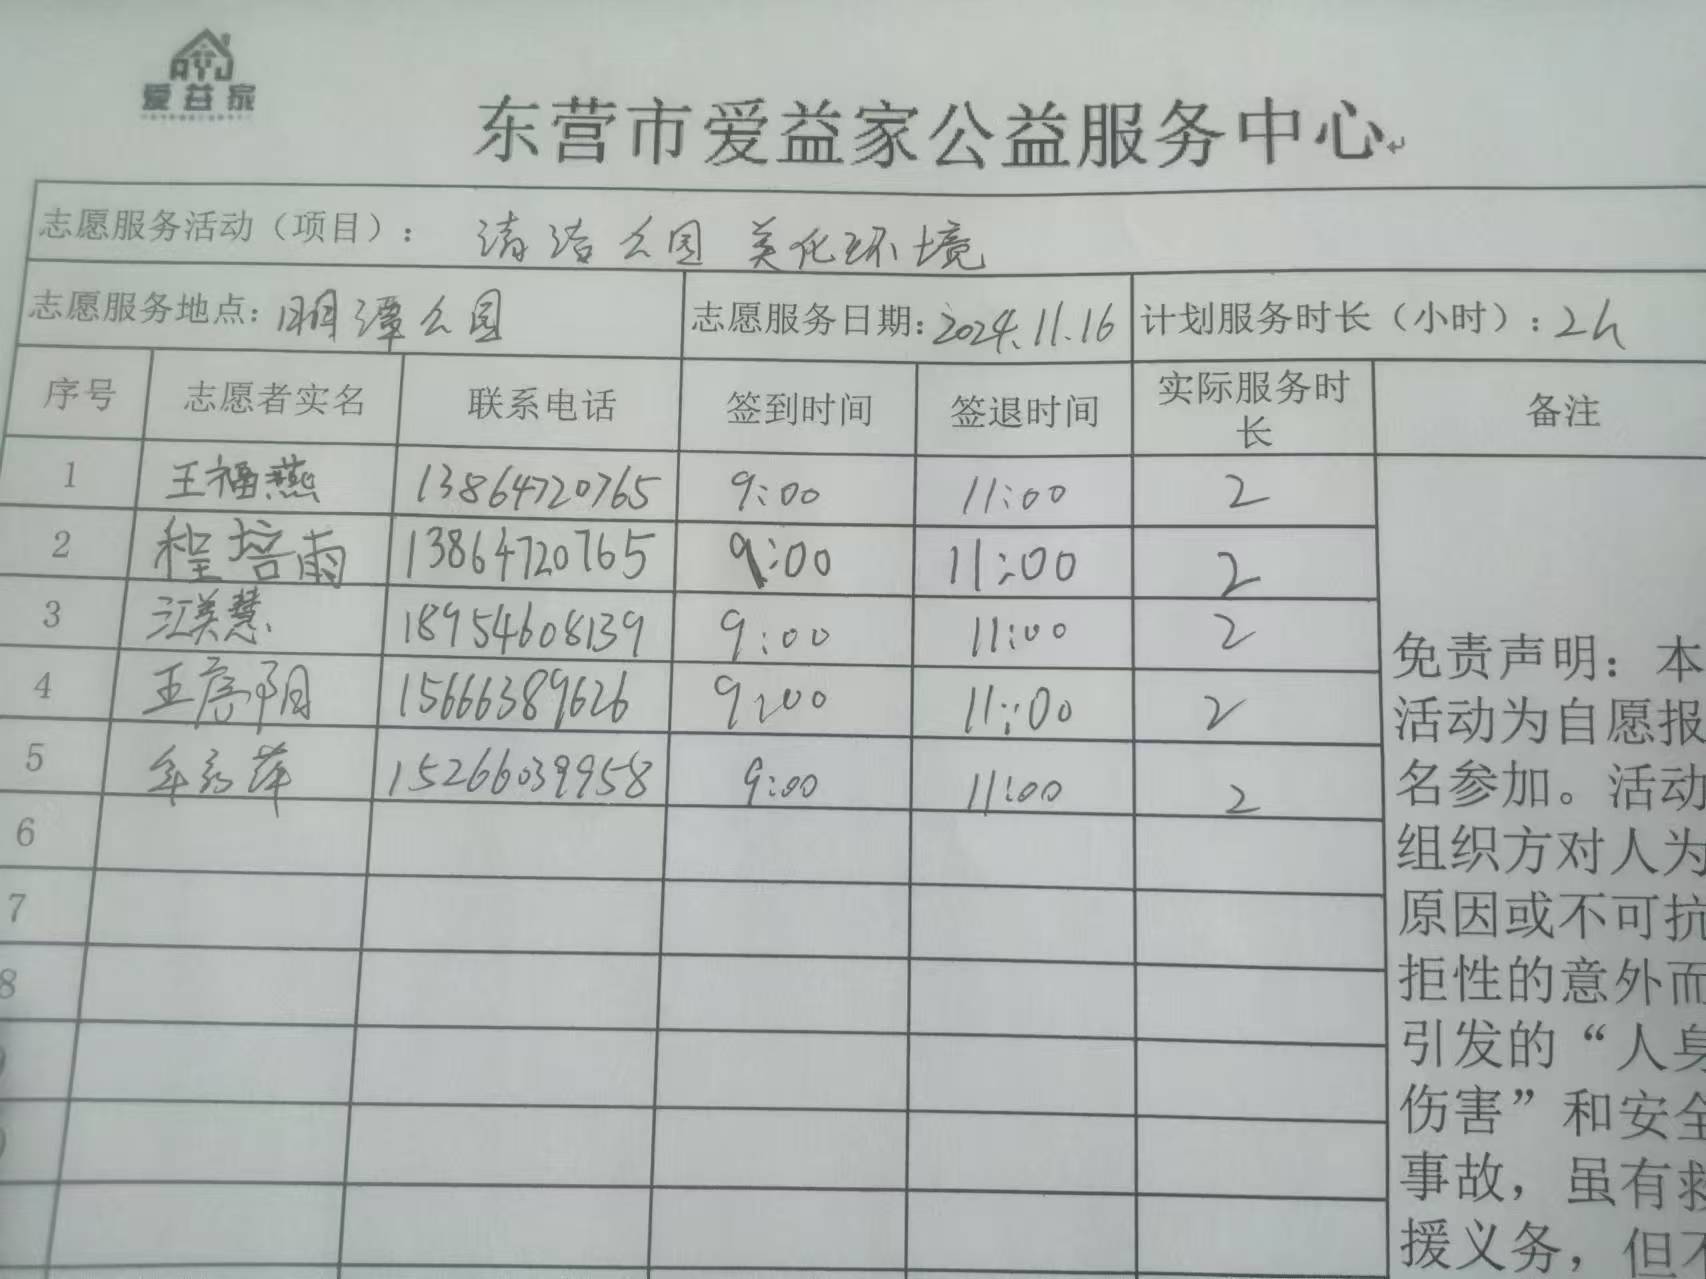 AYJ
爱益家
东营市爱益家公益服务中心
志愿服务活动（项目）： 清洁公园 美化环境
志愿服务地点：明潭公园 志愿服务日期：2024.11.16 计划服务时长（小时）：2h
序号 志愿者实名 联系电话 签到时间 签退时间 实际服务时长 备注
1 王福燕 13864720765 9:00 11:00 2
2 程培雨 13864720765 9:00 11:00 2
3 江美慧 18954608139 9:00 11:00 2
4 王 15666389626 9:00 11:00 2
5 15266039958 9:00 11:00 2
6
7
8
免责声明：本
活动为自愿报
名参加。活动
组织方对人为
原因或不可抗
拒性的意外而
引发的“人身
伤害”和安全
事故，虽有救
援义务，但不